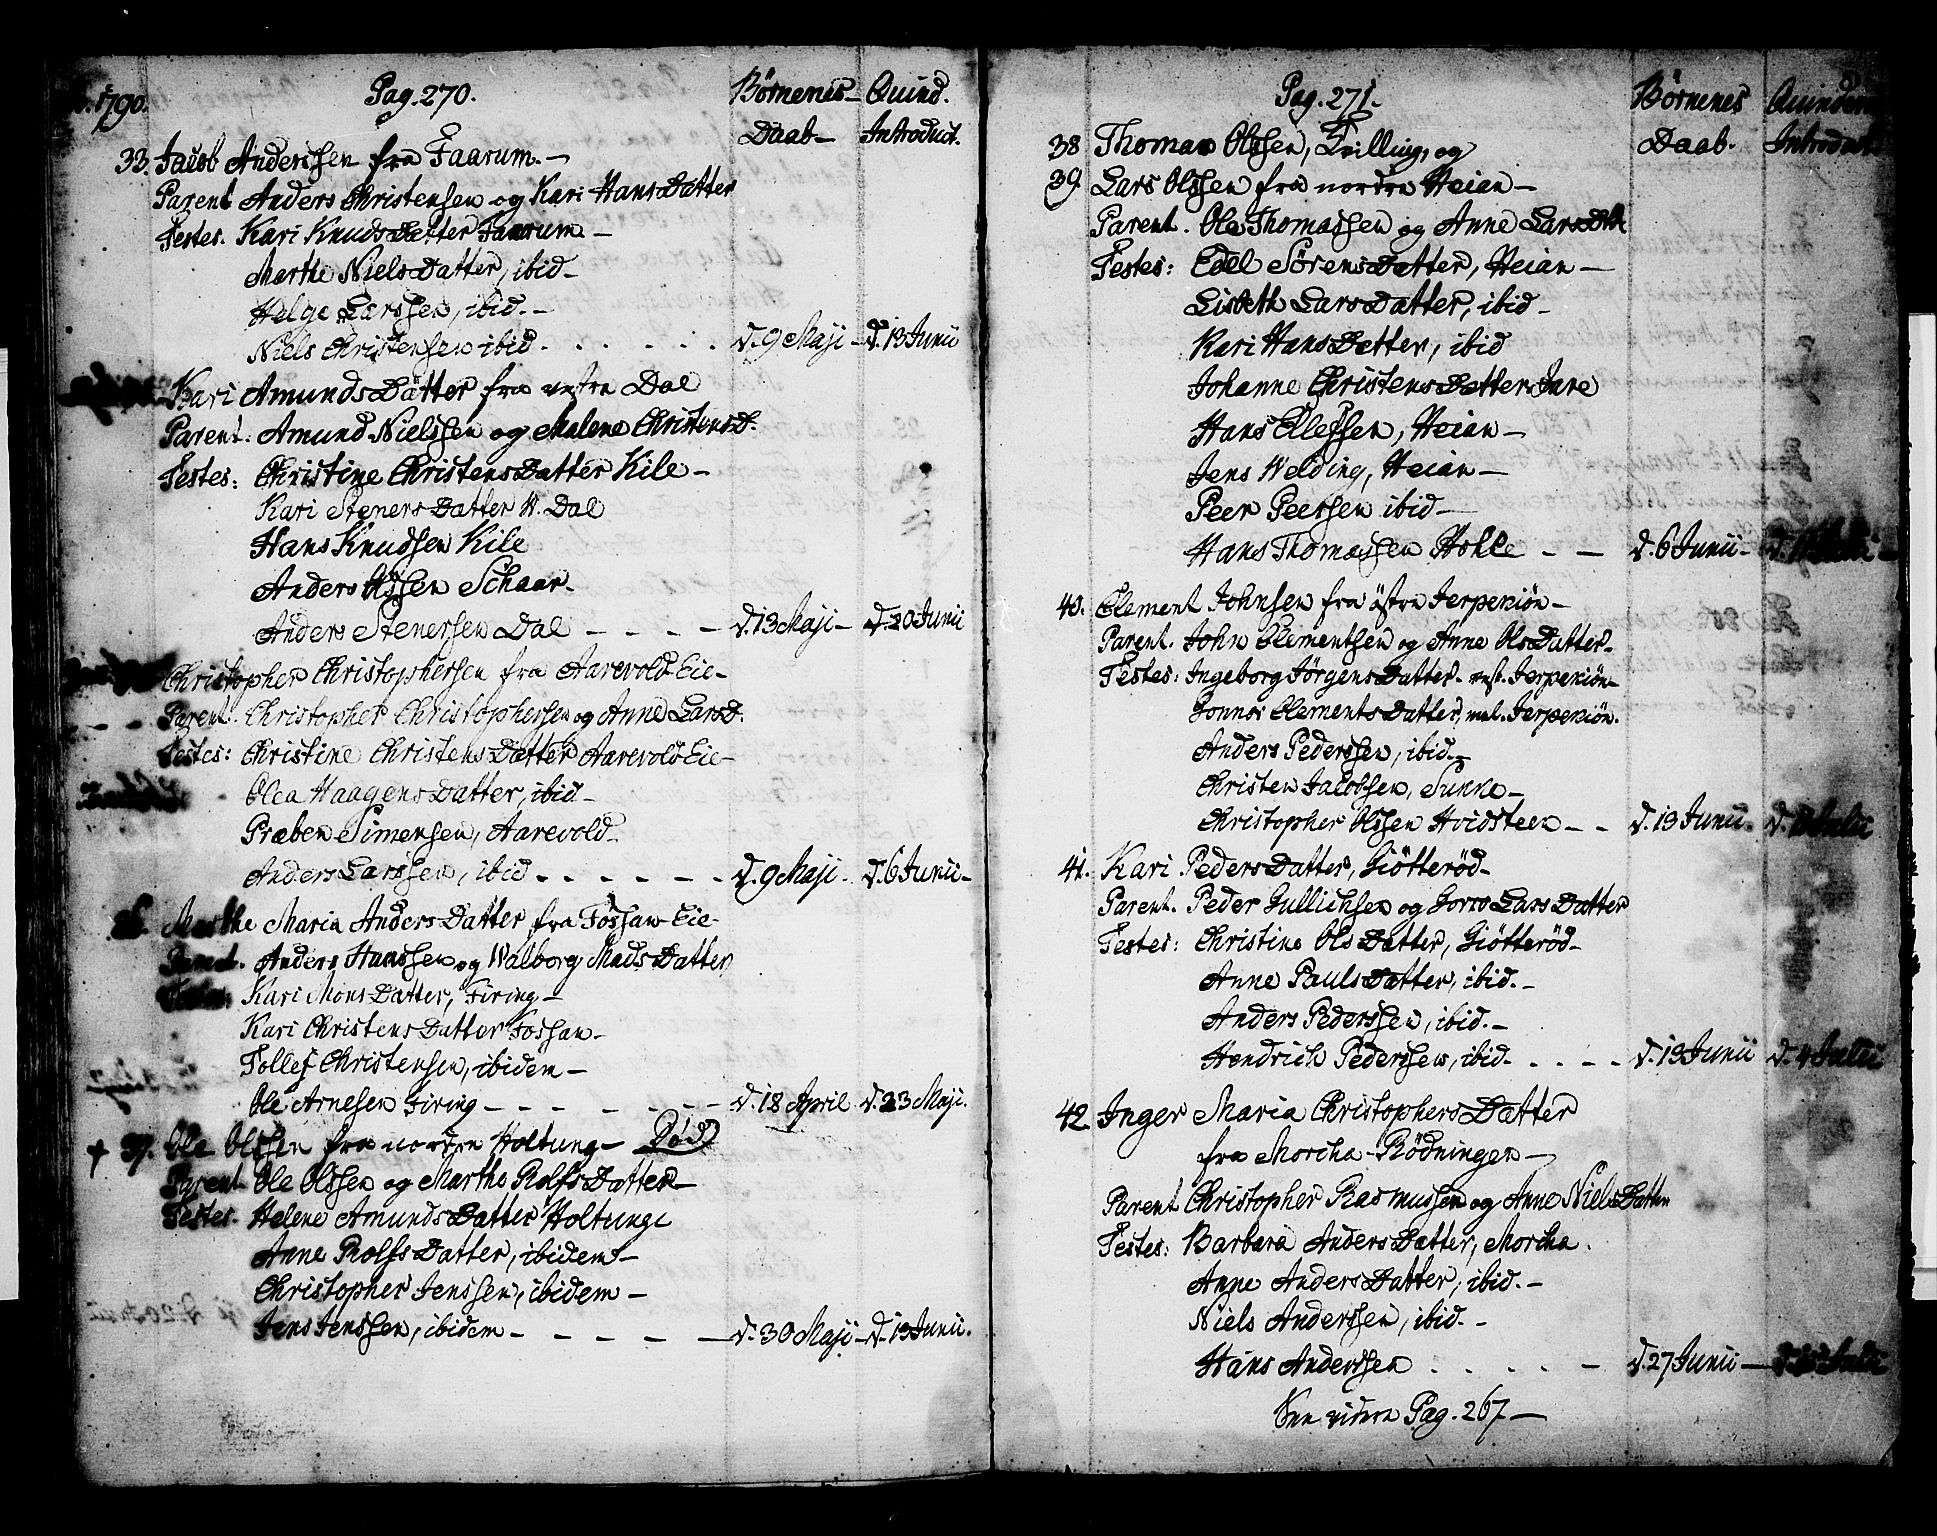 1790.
Pag. 270.
Børnenes Daab
Quind. Introduct.
33. Jacob Anderssen fra Faarum.
Parent Anders Christensen og Kari HansDatter
Testes. Kari KnudsDatter Faarum
Marthe NielsDatter, ibid
Helge Larssen, ibid.
Niels Christensen ibid. d. 9 Maji d. 13 Junii
Kari AmundsDatter fra vestre Dal
Parent. Amund Nielssen og Malene ChristensD.
Testes: Christine ChristensDatter Kile
Kari StenersDatter W. Dal
Hans Knudsen Kile
Anders Olssen Schaar.
Anders Stenersen Dal d. 13 Maji d. 20 Junii
Christopher Christophersen fra Aarevold Eie
Parent. Christopher Christophersen og Anne LarsD.
Testes: Christine ChristensDatter Aarevold Eie
Olea HaagensDatter, ibid
Præben Simensen, Aarevold
Anders Larssen, ibid d. 9 Maji d. 6 Junii
36. Marthe Maria AndersDatter fra Fossan Eie
Parent. Anders Hanssen og Walborg MadsDatter
Testes: Kari MonsDatter, Firing
Kari ChristensDatter Fossan
Tollef Christensen, ibidem
Ole Arnesen Firing d. 18 April d. 23 Maji.
+ 37. Ole Olssen fra nordre Holtung Død
Parent Ole Olssen og Marthe RolfsDatter
Testes. Helene AmundsDatter Holtung
Anne RolfsDatter, ibidem
Christopher Jenssen, ibidem
Jens Jenssen, ibidem d. 30 Maji d. 13 Junii.
Pag. 271.
Børnenes Daab.
Quindern Introduct
38 Thomas Olssen, Tvilling, og
39. Lars Olssen fra nordre Heian
Parent. Ole Thomassen og Anne LarsDtr
Testes: Edel SörensDatter, Heian
Lisbeth LarsDatter, ibid
Kari HansDatter, ibid
Johanne ChristensDatter Jare
Hans Ellefsen, Heian
Jens Welding, Heian
Peer Peersen ibid
Hans Thomassen Hohle d. 6 Junii d.
40. Clement Johnsen fra östre Jerpekiön
Parent. John Clementsen og Anne OlsDatter
Testes: Ingeborg JörgensDatter vest. Jerpekiön
Gonnor ClementsDatter, mel. Jerpekiön.
Anders Pederssen, ibid.
Christen Jacobsen, Sukke
Christopher Olssen Hvidsteen d. 13 Junii. d. 18 Julii
41. Kari PedersDatter, Giötteröd
Parent. Peder Gullichsen og Goro LarsDatter
Testes: Christine OlsDatter, Giötteröd
Anne PaulsDatter, ibid.
Anders Pederssen, ibid.
Hendrich Pederssen, ibid d. 13 Junii d. 4 Julii
42. Inger Maria ChristophersDatter
fra Morcha-Rödningen
Parent Christopher Rasmussen og Anne NielsDatter
Testes: Barbara AndersDatter, Morcha.
Anne AndersDatter, ibid.
Niels Anderssen, ibid.
Hans Anderssen d. 27 Junii d. Julii
See videre Pag. 267.